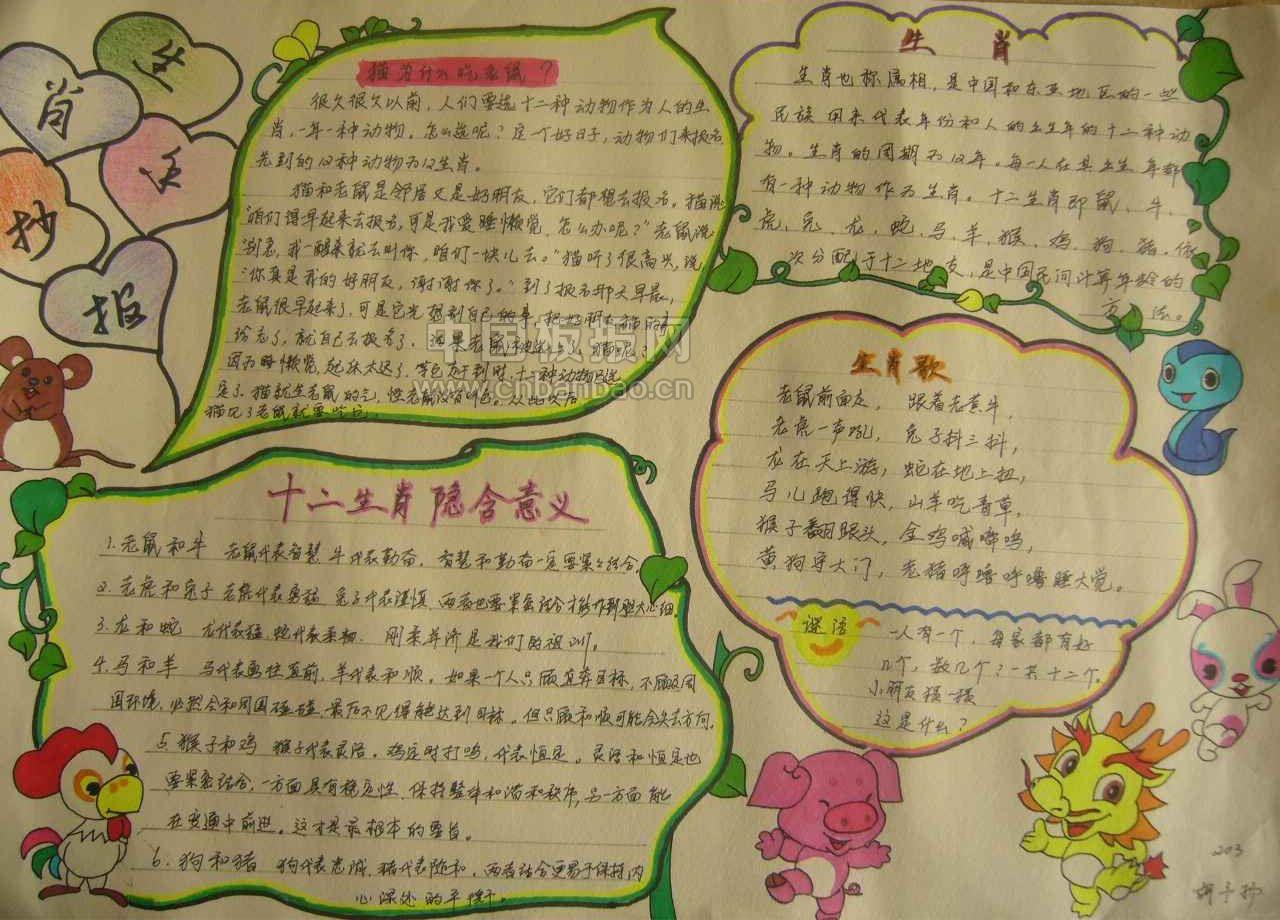 生肖
手抄报
猫为什么吃老鼠？
很久很久以前，人们要选十二种动物作为人的生
肖，一年一种动物。怎么选呢？定一个好日子，动物们来报名，
先到的12种动物为12生肖。
猫和老鼠是邻居又是好朋友，它们都想去报名。猫说
“咱们得早起来去报名，可是我爱睡懒觉，怎么办呢？”老鼠说
“别急，我一醒来就去叫你，咱们一块儿去。”猫听了很高兴，说
“你真是我的好朋友，谢谢你了。”到了报名那天早晨，
老鼠很早起来了，可是它光想到自己的事，把好朋友猫的事
给忘了，就自己去报名了。结果老鼠被选上了。猫呢？
因为睡懒觉，起床太迟了，等它赶到时，十二种动物已选
定了。猫就生老鼠的气，怪老鼠没有叫它。从此以后
猫见了老鼠就要吃它
中国板报网
www.cnbanbao.cn
生肖
生肖也称属相，是中国和东亚地区的一些
民族用来代表年份和人的出生年的十二种动
物。生肖的周期为12年。每一人在其出生年都
有一种动物作为生肖。十二生肖即鼠、牛、
虎、兔、龙、蛇、马、羊、猴、鸡、狗、猪。依
次分配于十二地支，是中国民间计算年龄的
方法。
生肖歌
老鼠前面走，跟着老黄牛，
老虎一声吼，兔子抖三抖，
龙在天上游，蛇在地上扭，
马儿跑得快，山羊吃青草，
猴子翻跟头，金鸡喊喔喔，
黄狗守大门，老猪呼噜呼噜睡大觉。
谜语
一人有一个，每家都有好
几个，数几个？一共十二个。
小朋友猜一猜
这是什么？
十二生肖隐含意义
1.老鼠和牛 老鼠代表智慧 牛代表勤奋，智慧和勤奋一定要紧紧结合
2.老虎和兔子 老虎代表勇猛 兔子代表谨慎，两者也要紧密结合才能作到胆大心细。
3.龙和蛇 龙代表猛，蛇代表柔韧 刚柔并济是我们的祖训。
4.马和羊 马代表勇往直前，羊代表和顺。如果一个人只顾直奔目标，不顾及周
围环境，必然会和周围磕碰，最后不见得能达到目标。但只顾和顺可能会失去方向。
5猴子和鸡 猴子代表灵活。鸡定时打鸣，代表恒定。灵活和恒定也
要紧密结合，一方面具有稳定性，保持整体和谐和秩序，另一方面能
在变通中前进。这才是最根本的要旨。
6.狗和猪 狗代表忠诚，猪代表随和，两者结合更易于保持内
心深处的平衡。
203